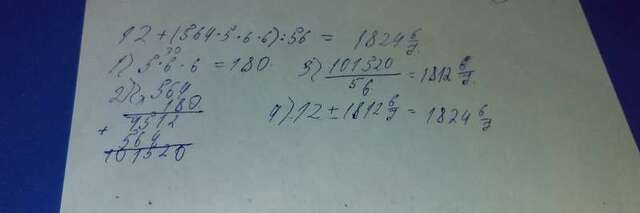 12+(564·5·6·6):56 = 1824 6/7.
1) 5·6·6 = 180
30
2) × 564
180
+ 4512
564
101520
3) 101520/56 = 1812 6/7.
4) 12 + 1812 6/7 = 1824 6/7